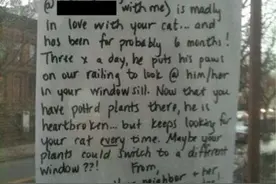 @ with me) is madly
in love with your cat... and
has been for probably 6 months!
Three x a day, he puts his paws
on our railing to look @ him/her
in your windowsill. Now that you
have potted plants there, he is
heartbroken... but keeps looking for
your cat every time. Maybe your
plants could switch to a different
window??!
From,
neighbor + her